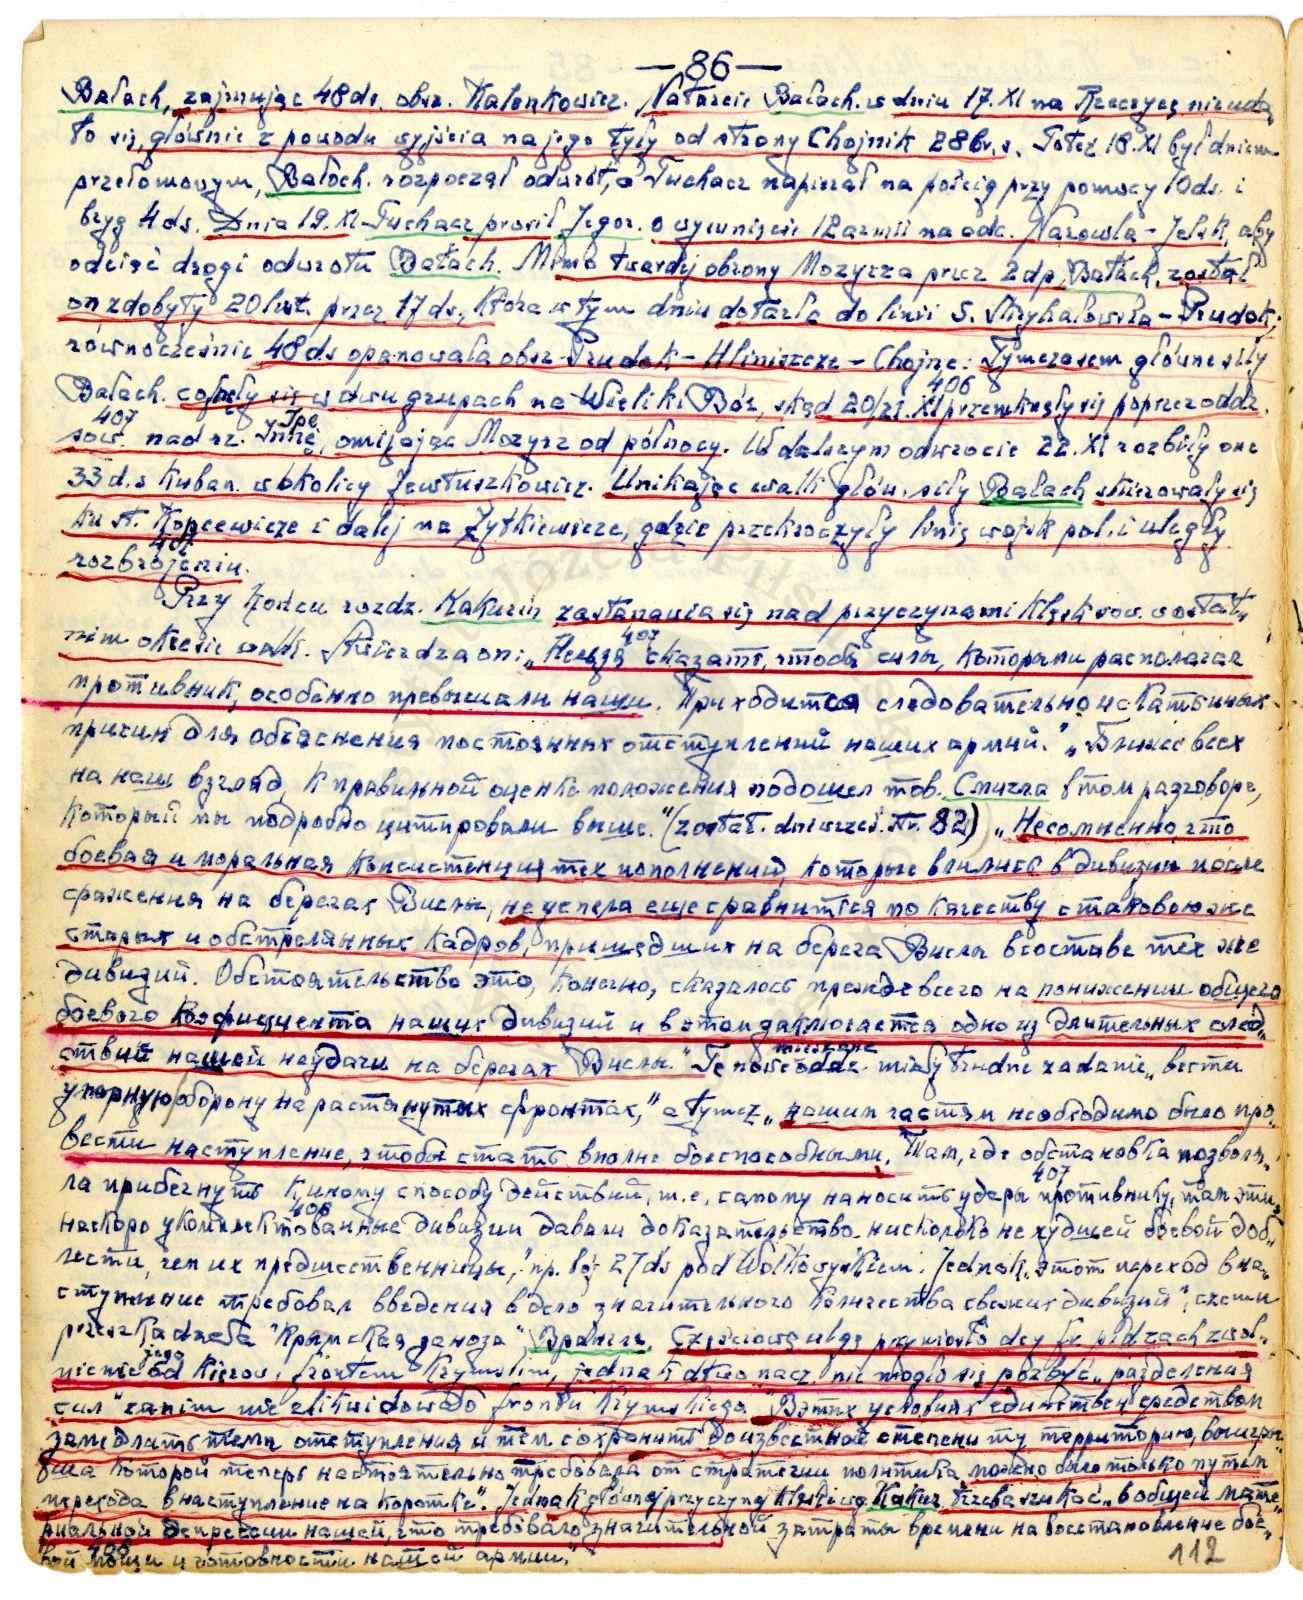 — 86 —
Bałach, zajmując 48 ds. obsz. Kalenkowicz. Natarcie Bałach. w dniu 17.XI na Rzeczycę nie uda„
ło się, głównie z powodu wyjścia na jego tyły od strony Chojnik 28 br. s. Toteż 18.XI był dniem
przełomowym, Bałach. rozpoczął odwrót, a Tuchacz napierał na pościg przy pomocy 10 ds. i
bryg 4 ds. Dnia 19.XI Tuchacz prosił Jegor. o wysunięcie 12 armii na odc. Narowla – Jelsk, aby
odciąć drogi odwrotu Bałach. Mimo twardej obrony Mozyrza przez 2 dp. Bałach. został
on zdobyty 20 list. przez 17 ds., która w tym dniu dotarła do linii S. Strzhałowska – Prudok;
równocześnie 48 ds opanowała obsz. Prudok – Hliniszcze – Chojne. Tymczasem główne siły
406
Bałach. cofnęły się w dwu grupach na Wieliki Bór, skąd 20/21.XI przemknęły się poprzez oddz.
407 Ipę
sow. nad rz. omijając Mozyrz od północy. W dalszym odwrocie 22.XI rozbiły one
33 d. s kuban. w okolicy Jewtuszkowicz. Unikając walki głów. siły Bałach skierowały się
ku st. Kopcewicze i dalej na Żytkiewicze, gdzie przekroczyły linię wojsk pol. i uległy
407
rozbrojeniu.
Przy końcu rozdz. Kakurin zastanawia się nad przyczynami klęsk sow. w ostat„
407
nim okresie walk. Stwierdza on: „Нельзя сказать, чтобы силы, которыми располагал
противник, особенно превышали наши. Приходится следовательно искать иных
причин для объяснения постоянных отступлений наших армий." „Ближе всех
на наш взгляд, к правильной оценке положения подошел тов. Смилга в том разговоре,
который мы подробно цитировали выше." (zostat. str. 82) „Несомненно, что
боевая и моральная консистенция тех пополнений, которые влились в дивизии после
сражения на берегах Вислы, не успела еще сравниться по качеству с таковою же
старых и обстрелянных кадров, пришедших на берега Вислы в составе тех же
дивизий. Обстоятельство это, конечно, сказалось прежде всего на понижении общего
боевого коэфициента наших дивизий и в этом заключается одно из длительных след„
ствий нашей неудачи на берегах Вислы." Te oddz. miały trudne zadanie „вести
упорную оборону на растянутых фронтах," a tymcz „нашим частям необходимо было про„
вести наступление, чтобы стать вполне боеспособными. Там, где обстановка позволя„
407
ла прибегнуть к иному способу действий, т. е. самому наносить удары противнику, там эти
408
наскоро укомплектованные дивизии давали доказательство нисколько не худшей боевой доб„
лести, чем их предшественницы," np. bój 27 ds pod Wołkowyskiem. Jednak „этот переход в на„
ступление требовал введения в дело значительного количества свежих дивизий",
przeszkadzała "крымская заноза", Врангель. Częściową ulgę przyniosło dey fr płdzach zwol„
jego
nienie od kierow. frontem krymskim, jednak dłuo nacz. nie mogło się pozbyć „разделения
сил" zanim nie zlikwidowało frontu krymskiego. „В этих условиях единственным средством
замедлить темп отступления и тем сохранить до известной степени ту территорию,
которой теперь настоятельно требовала от стратегии политика, можно было только путем
перехода в наступление на коротке". Jednak głównej przyczyny klęski wg Kakur. trzeba szukać „в общей мате„
риальной депрессии нашей, что требовало значительной затраты времени на восстановление бое„
408
вой мощи и готовности нашей армии."
112